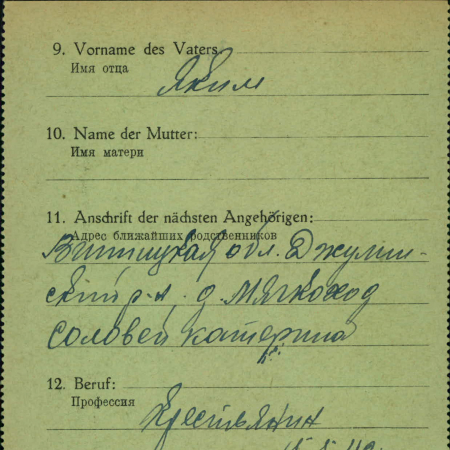 9. Vorname des Vaters
Имя отца
Яким
10. Name der Mutter:
Имя матери
11. Anschrift der nächsten Angehörigen:
Адрес ближайших родственников
Винницкая обл. Джулин-
ский р-н. д. Мягкоход
Соловей Катерина
12. Beruf:
Профессия
Крестьянин